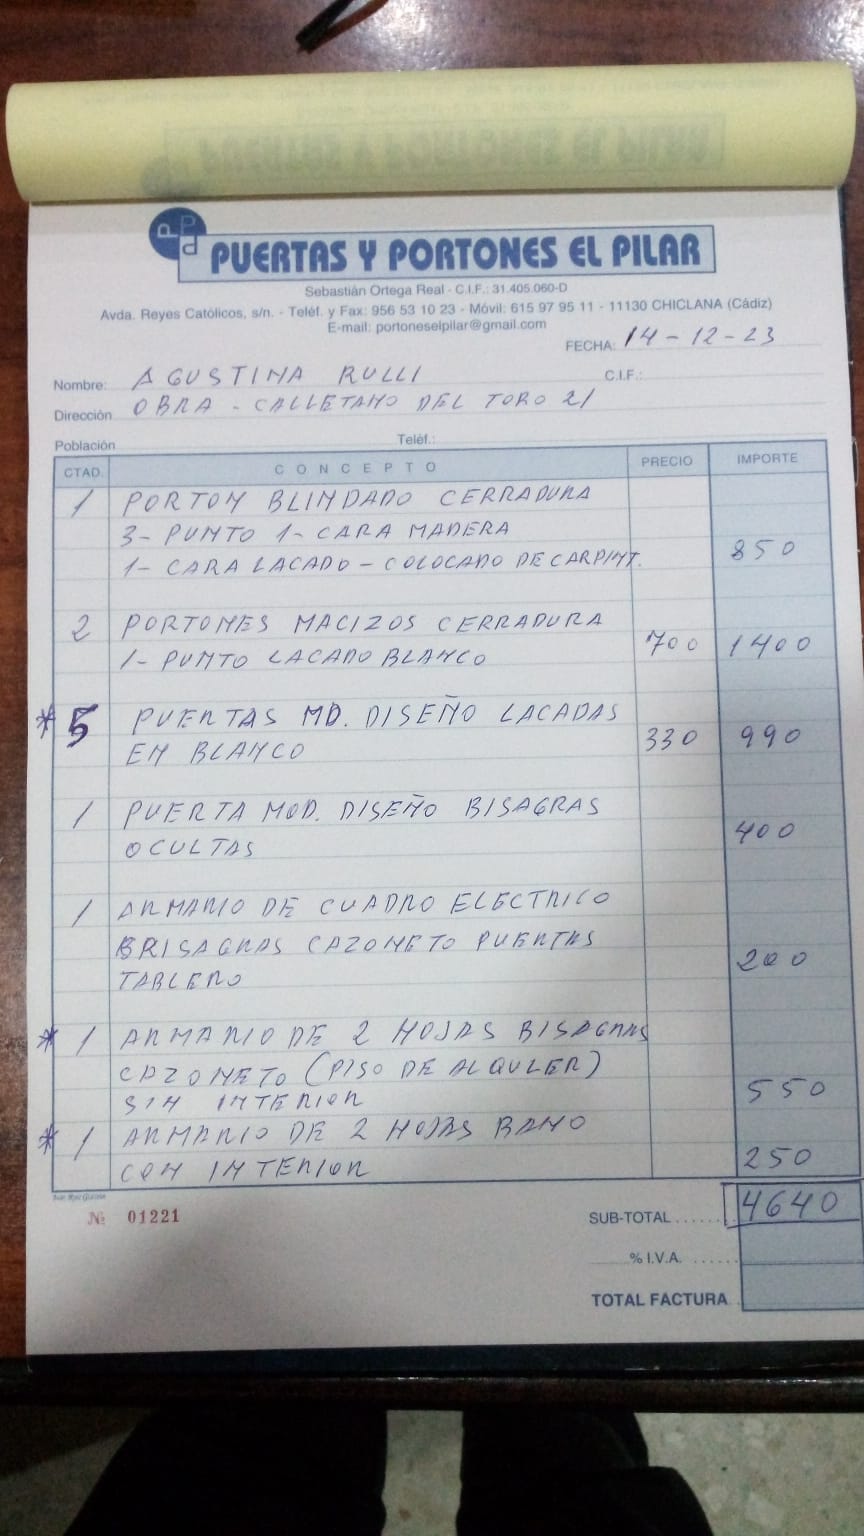 PUERTAS Y PORTONES EL PILAR
Sebastián Ortega Real - C.I.F.: 31.405.060-D
Avda. Reyes Católicos, s/n. - Teléf. y Fax: 956 53 10 23 - Móvil: 615 97 95 11 - 11130 CHICLANA (Cádiz)
E-mail: portoneselpilar@gmail.com
FECHA: 14-12-23
Nombre: AGUSTINA RULLI C.I.F.:
Dirección OBRA - CALLETANO DEL TORO 21
Población Teléf.:
CTAD. CONCEPTO PRECIO IMPORTE
1 PORTON BLINDADO CERRADURA
3- PUNTO 1- CARA MADERA
1- CARA LACADO - COLOCADO DE CARPINT. 850
2 PORTONES MACIZOS CERRADURA
1- PUNTO LACADO BLANCO 700 1400
* 5 PUERTAS MD. DISEÑO LACADAS
EN BLANCO 330 990
1 PUERTA MOD. DISEÑO BISAGRAS
OCULTAS 400
1 ARMARIO DE CUADRO ELECTRICO
BRISAGRAS CAZONETO PUERTAS
TABLERO 200
* 1 ARMARIO DE 2 HOJAS BISAGRAS
CAZONETO (PISO DE ALQULER)
SIN INTERIOR 550
* 1 ARMARIO DE 2 HOJAS BAÑO
CON INTERIOR 250
Nº 01221
SUB-TOTAL 4640
% I.V.A.
TOTAL FACTURA